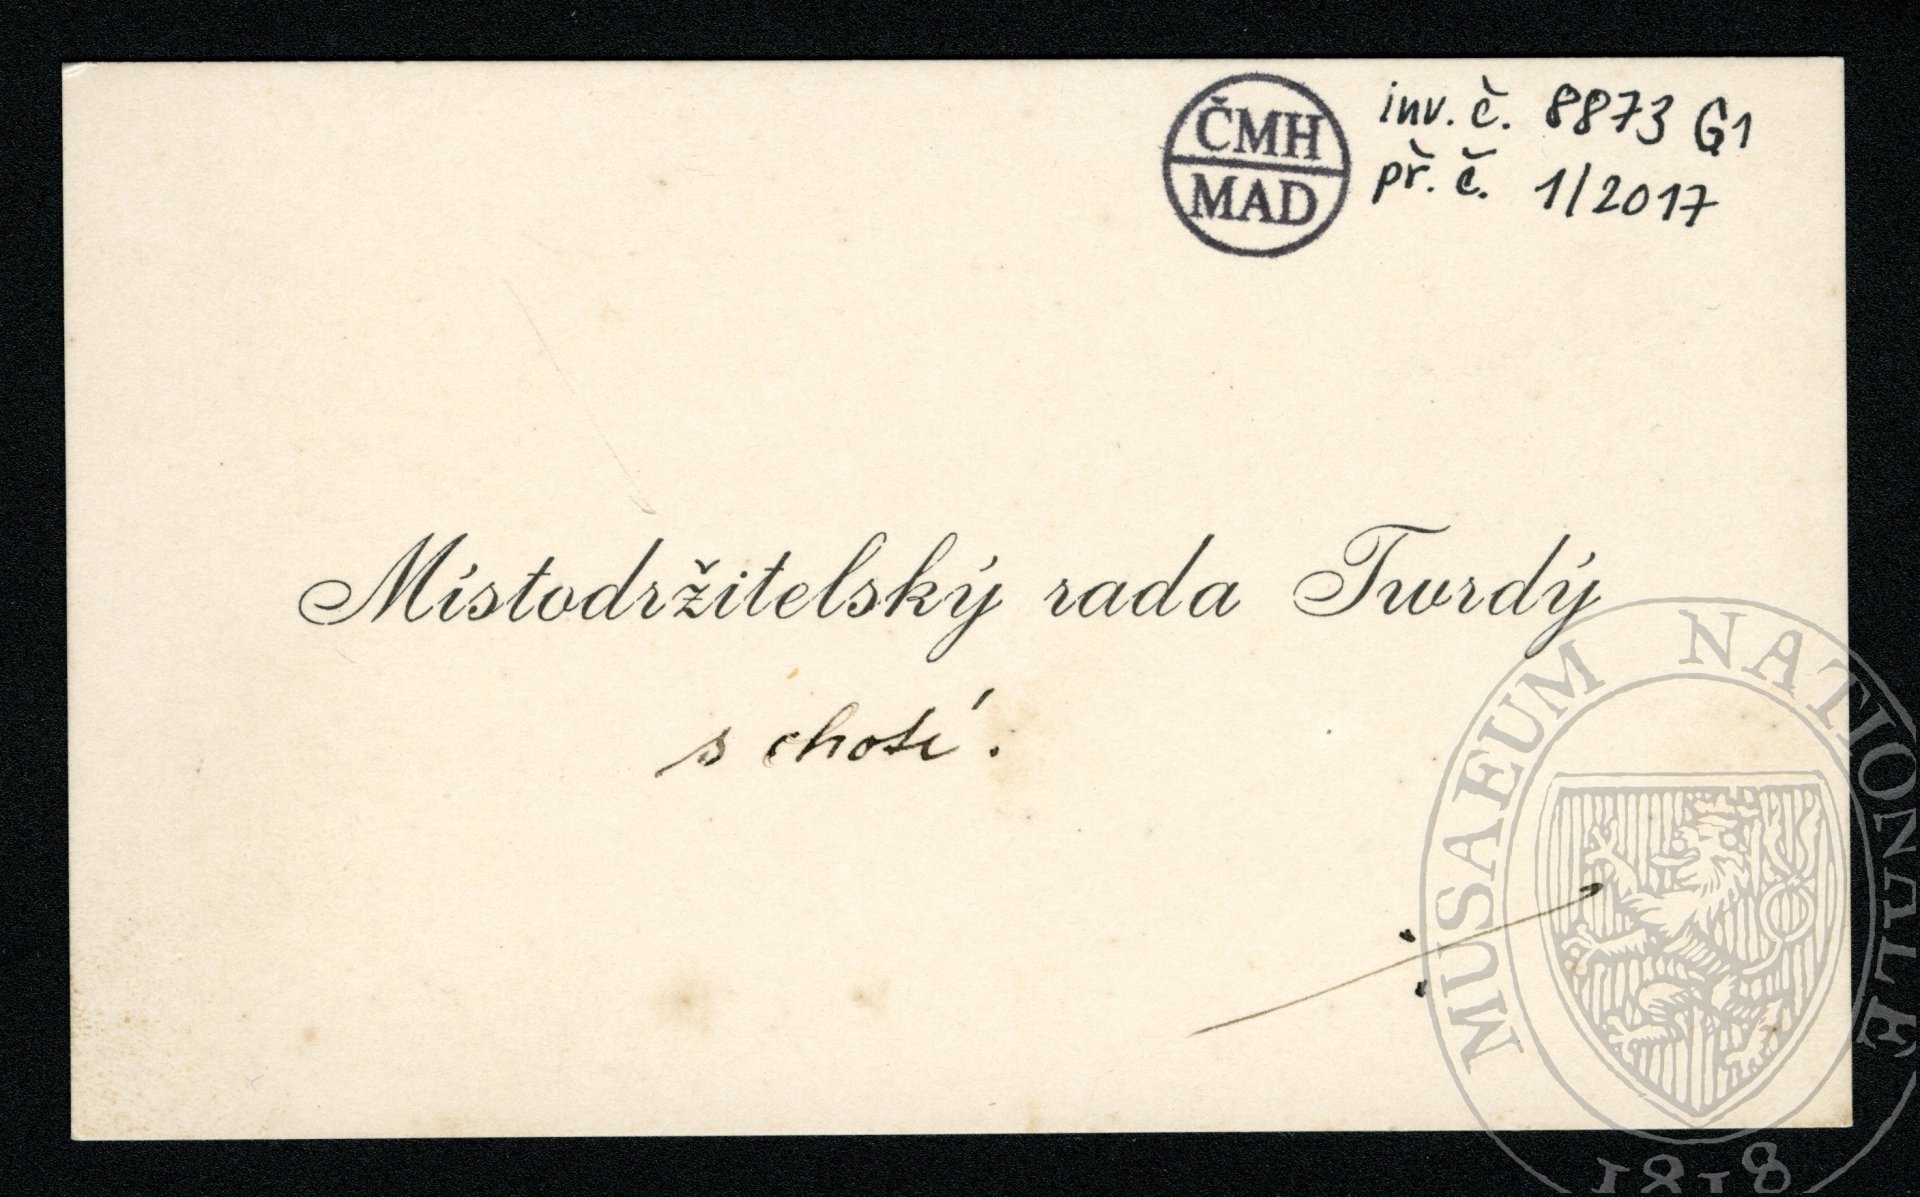 ČMH
MAD
inv. č. 8873 G1
př. č. 1/2017
Místodržitelský rada Twrdý
s chotí.
MUSAEUM NATIONALE
1818